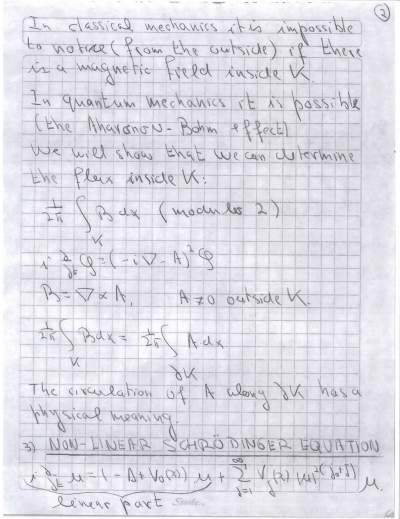 2
In classical mechanics it is impossible
to notice (from the outside) if there
is a magnetic field inside K.
In quantum mechanics it is possible
(the Aharonov-Bohm effect)
We will show that we can determine
the flux inside K:
1/2π ∫_K B dx (modulus 2)
i ∂/∂t φ = (-i∇ - A)² φ
B = ∇ × A, A ≠ 0 outside K.
1/2π ∫_K B dx = 1/2π ∫_∂K A dx
The circulation of A along ∂K has a
physical meaning.
3) NON-LINEAR SCHRÖDINGER EQUATION
i ∂/∂t u = (-Δ + V₀(x)) u + Σ_{j=1}^∞ V_j(x) |u|^{2(j₀+j)} u.
linear part